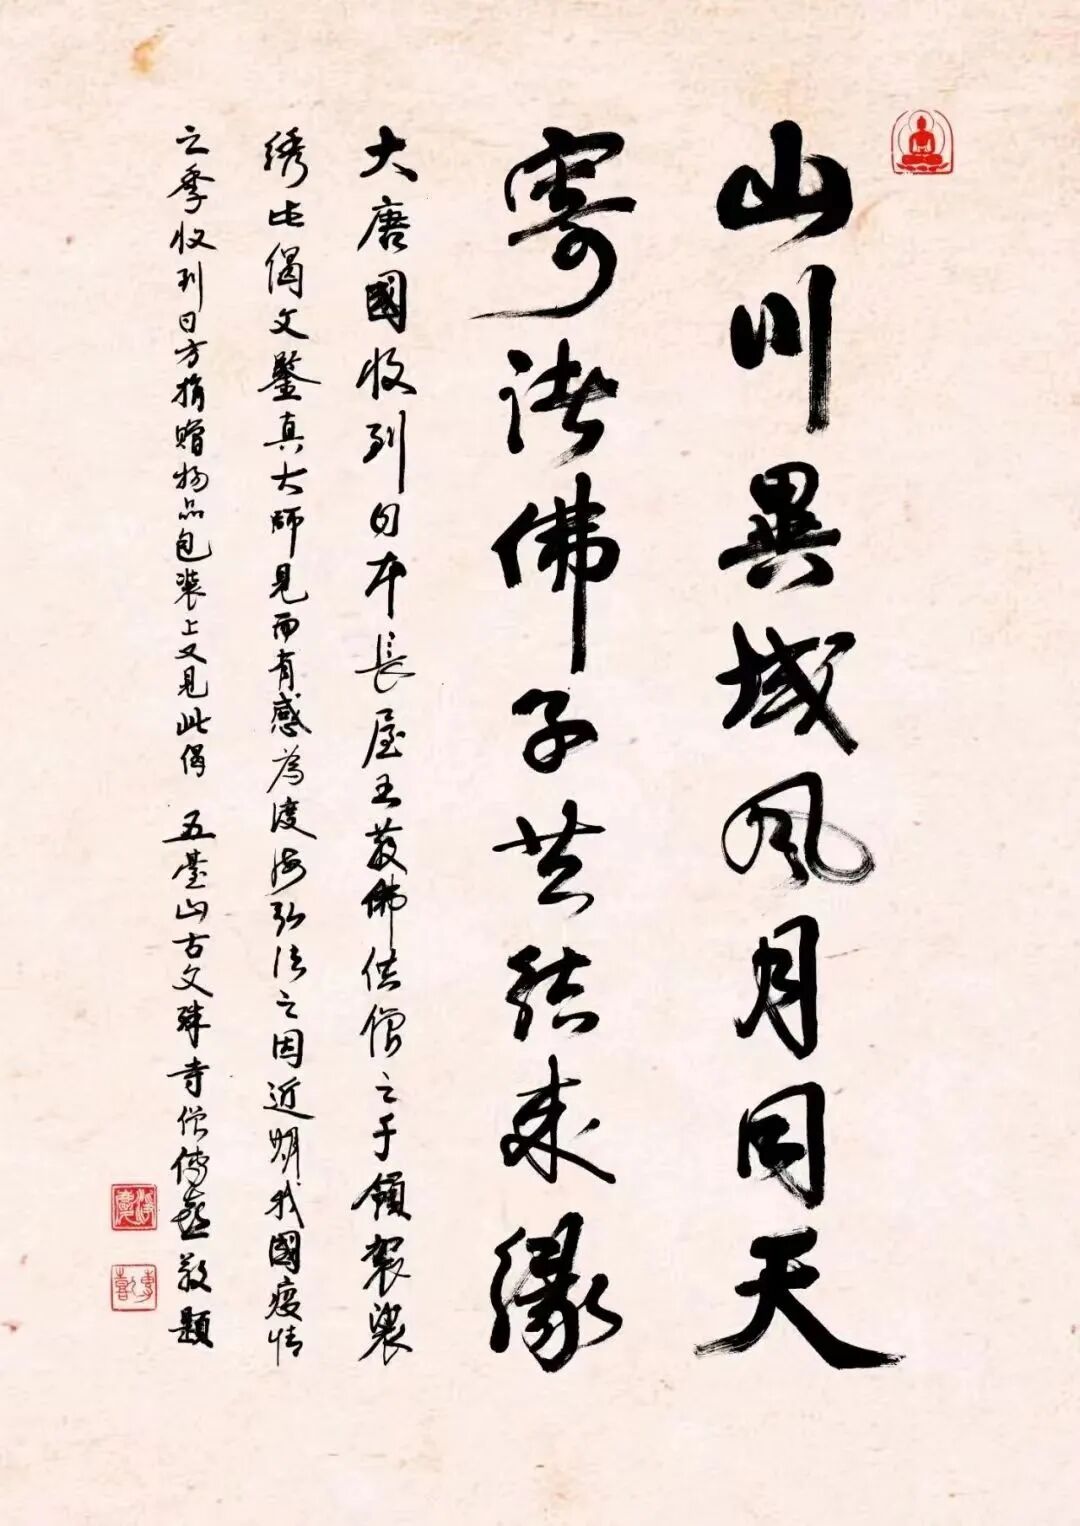 山川異域風月同天
寄諸佛子共結來緣
大唐國收到日本長屋王敬佛供僧之千領袈裟
綉此偈文鑒真大師見而有感為渡海弘法之因近期我國疫情
之季收到日方捐贈物品包裝上又見此偈 五臺山古文殊寺僧傳喜敬題
傳喜